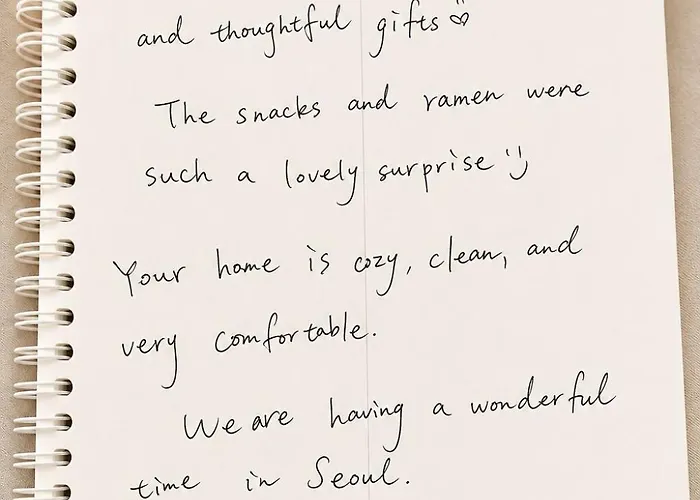 and thoughtful gifts ♡
The snacks and ramen were
such a lovely surprise :)
Your home is cozy, clean, and
very comfortable.
We are having a wonderful
time in Seoul.